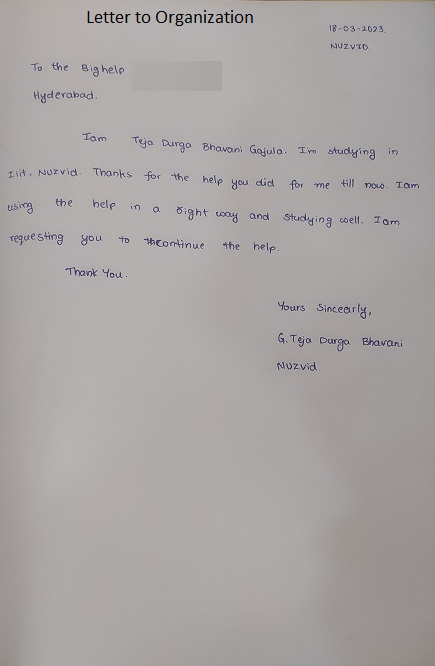 Letter to Organization
18-03-2023,
NUZVID.
To the Bighelp
Hyderabad.
Iam Teja Durga Bhavani Gajula. I'm studying in
IIIt, Nuzvid. Thanks for the help you did for me till now. Iam
using the help in a right way and studying well. Iam
requesting you to continue the help.
Thank You.
Yours Sincearly,
G. Teja Durga Bhavani
Nuzvid.